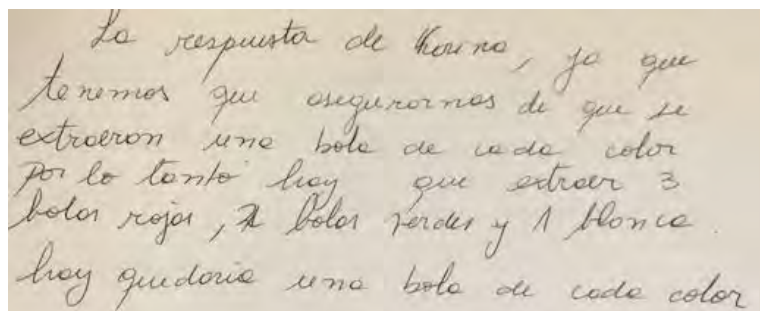 La respuesta de Korina, ya que
tenemos que asegurarnos de que se
extraeron una bola de cada color
Por lo tanto hay que extraer 3
bolas rojas, 2 bolas verdes y 1 blanca.
hay quedaria una bola de cada color